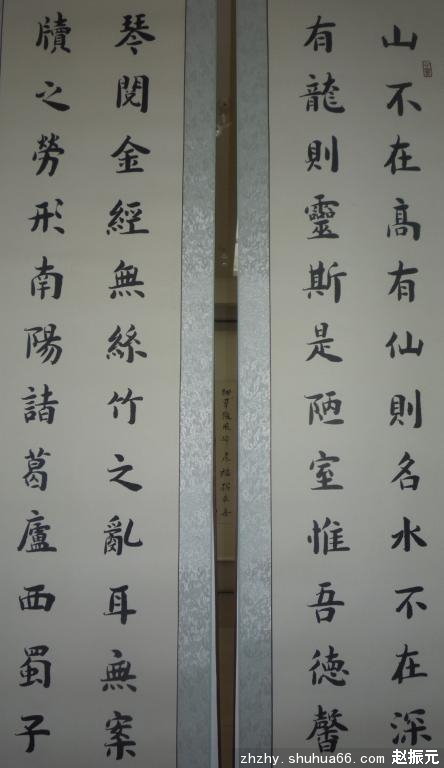 山不在高有仙則名水不在深
有龍則靈斯是陋室惟吾德馨
琴閱金經無絲竹之亂耳無案
牘之勞形南陽諸葛廬西蜀子
zhzhy.shuhua66.com 赵振元